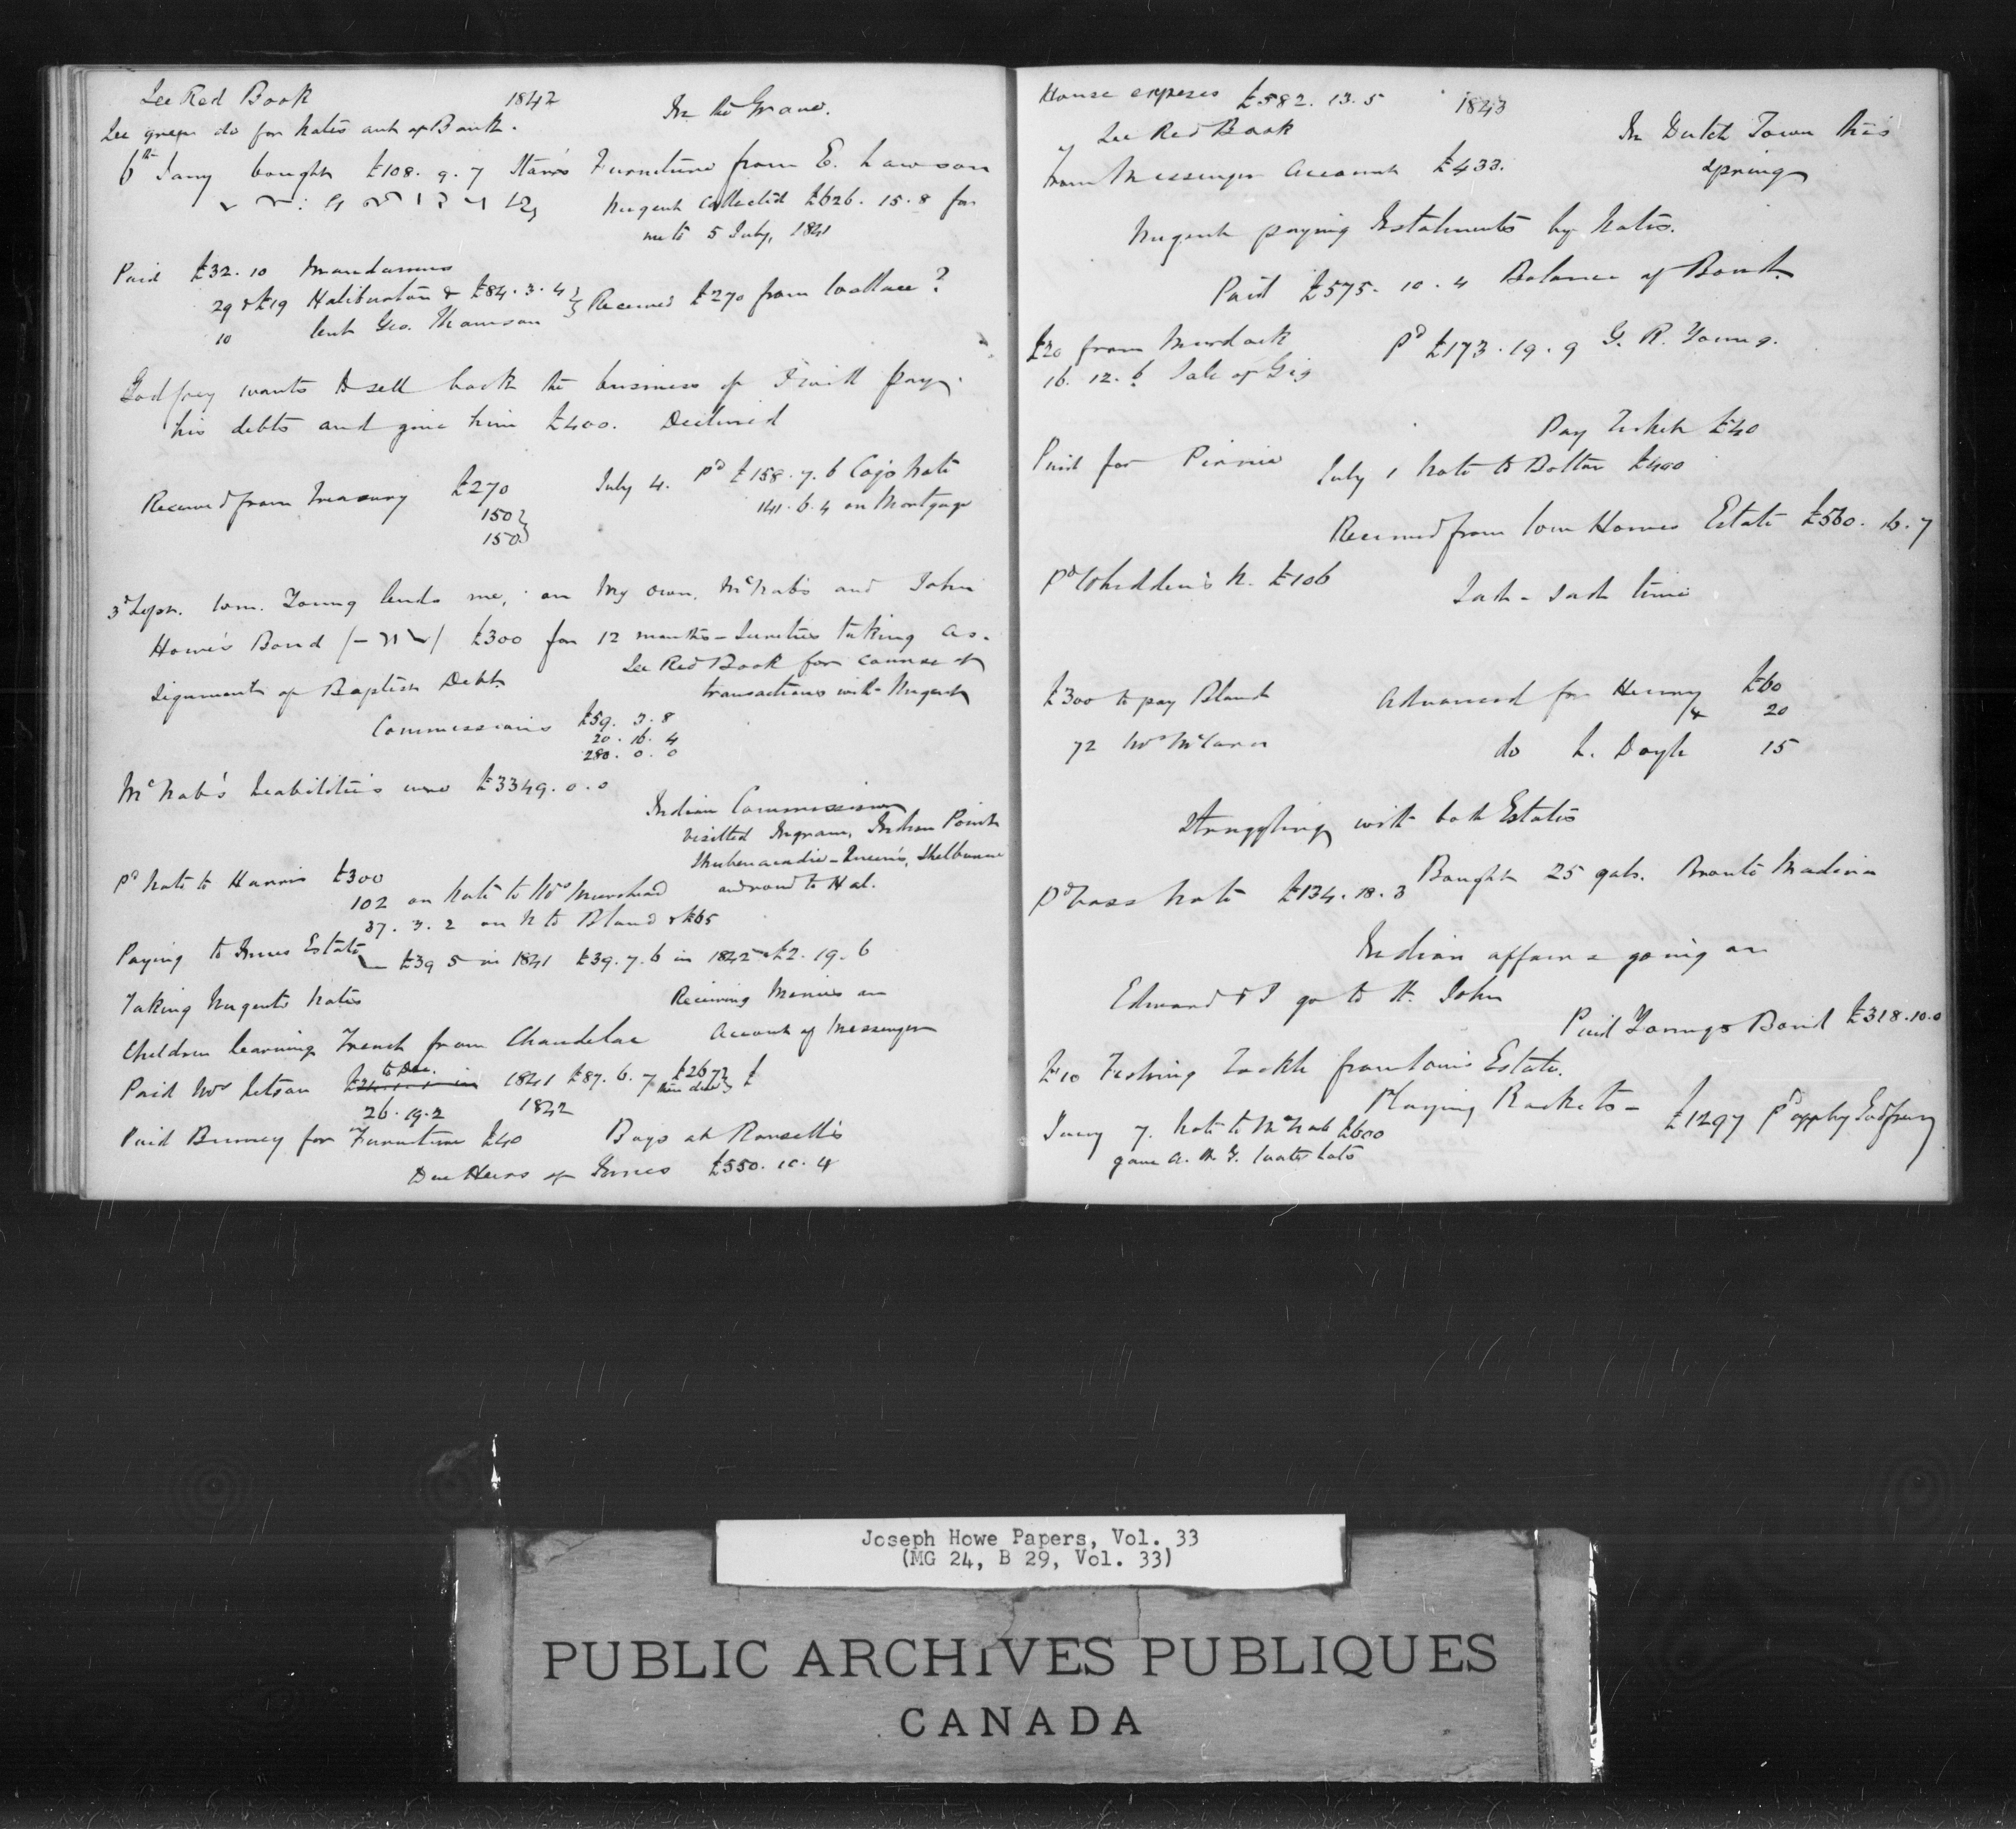 See Red Book 1842 In the Grand.
See green do for Notes act of Bank.
6th Jany bought £108. 9. 7 Stairs Furniture from E. Lawson
Nugent Collected £626. 15. 8 for
me to 5 July, 1841
Paid £32. 10 Mandamus
29 & £19 Haliburton & £84. 3. 4
10 lent Geo. Thomson
Received £270 from Wallace?
Godfrey wants to sell back the business if I will pay
his debts and give him £400. Declined
Received from Treasury £270
150
150
July 4. Pd £158. 7. 6 Note
141. 6. 4 on Mortgage
3d Sepr. Wm. Young lends me, on my own, McNab's and John
Howe's Bond £300 for 12 months – Sureties taking as-
signment of Baptist Debt.
See Red Book for course of
transactions with Nugent
Commissions £59. 3. 8
20. 16. 4
280. 0. 0
McNab's Liabilities were £3349. 0. 0
Indian Commission
visited Ingram, Indian Point
Shubenacadie – Queen's, Shelburne
and round to Hal.
Pd Note to Harris £300
102 on Note to Mrs
37. 3. 2 on N to Bland & £65
Paying to Innes Estate
£39 5 in 1841 £39. 7. 6 in 1842 £2. 19. 6
Taking Nugent's Notes
Receiving Monies on
Account of Messenger
Children learning French from
Paid Mrs Letson to Dec. 1841 £87. 6. 7 £267
26. 19. 2 1842
Paid for Furniture £40 Boys at
Due Heirs of Innes £550. 10. 4
House expenses £582. 13. 5 1843
See Red Book
In Dutch Town this
Spring
from Messenger Account £433.
Nugent paying Instalments by Notes.
Paid £575. 10. 4 Balance of Bond.
£20 from Murdoch
16. 12. 6 Sale of Gig
Pd £173. 19. 9 G. R. Young.
Pay £40
Paid for
July 1 Note to £400
Received from Wm Howes Estate £560. 16. 7
Pd Whidden's N. £106
Sad – sad time
£300 to pay Bland
Advanced for Henry £60
& 20
72 Mrs
do L. Doyle 15
Struggling with both Estates
Pd Note £134. 18. 3
Bought 25 gals. Madeira
Indian affairs going on
Edward & I go to St. John
Paid Youngs Bond £318. 10. 0
£10 Fishing Tackle from Wm's Estate.
Playing Rackets –
£1297 Pd off by Godfrey
Jany 7. Note to McNab £600
gave A. M. G. Notes
Joseph Howe Papers, Vol. 33
(MG 24, B 29, Vol. 33)
PUBLIC ARCHIVES PUBLIQUES
CANADA